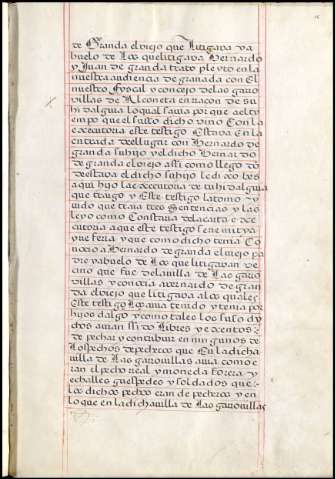 de Granda el viejo que Litigava ya
buelo de Los que litigava Bernardo
y Juan de granda trato pleyto en la
nuestra audiencia de granada con El
nuestro fyscal y concejo de las garo
villas de Alconeta en razon de su
hidalguia lo qual savia por que a el ti
empo que el susso dicho vino Con la
executoria este testigo Estava En la
entrada del lugar con Bernardo de
granda su hijo y el dicho Bernardo
de granda el viejo assi como llego do
de estava el dicho su hijo le dixo ves
aqui hijo la executoria de tu hidalguia
que traygo y Este testigo la tomo y
vido que traya tres Sentencias y las
leyo como Constaria de la carta e exe
cutoria a que este testigo se remitya
y referia y que como dicho tenia Co
nocio a Bernardo de granda el viejo pa
dre y abuelo de Los que litigavan ve
cino que fue de la villa de Las garro
villas y conocia a Bernardo de gran
da el viejo que litigava a los quales
Este testigo Los avia tenido y tenia por
hijos dalgo y como tales los suso di
chos avian sido Libres y exentos
de pechar y contribuir en ningunos de
Los pechos de pecheros que En la dicha
villa de Las garrovillas avia como e
ran el pecho real y moneda forera y
echalles guespedes y soldados que
los dichos pechos eran de pecheros y en
lo que en la dicha villa de Las garrovillas